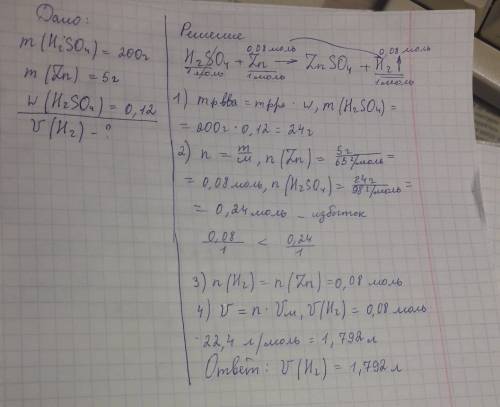 Дано:
m(H₂SO₄) = 200г
m(Zn) = 5г
w(H₂SO₄) = 0,12
V(H₂) - ?
Решение
0,08 моль 0,08 моль
H₂SO₄ + Zn → ZnSO₄ + H₂↑
1 моль 1 моль 1 моль
1) mрвва = mрра · w, m(H₂SO₄) =
= 200г · 0,12 = 24г
2) n = m/M, n(Zn) = 5г/65г/моль =
= 0,08 моль, n(H₂SO₄) = 24г/98г/моль =
= 0,24 моль - избыток
0,08/1 < 0,24/1
3) n(H₂) = n(Zn) = 0,08 моль
4) V = n · Vм, V(H₂) = 0,08 моль
· 22,4 л/моль = 1,792 л
Ответ: V(H₂) = 1,792 л